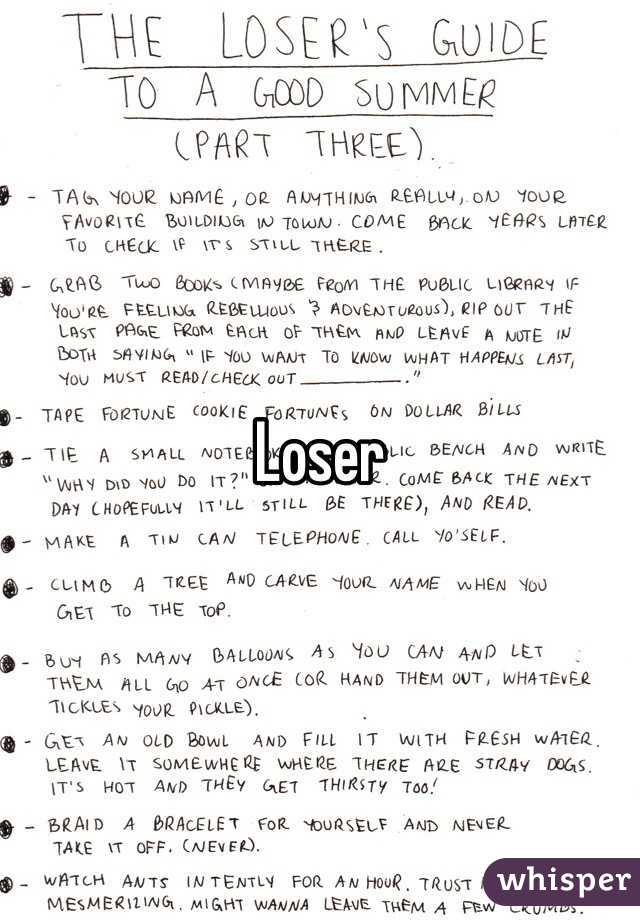 THE LOSER'S GUIDE
TO A GOOD SUMMER
(PART THREE).
- TAG YOUR NAME, OR ANYTHING REALLY, ON YOUR
FAVORITE BUILDING IN TOWN. COME BACK YEARS LATER
TO CHECK IF IT'S STILL THERE.
- GRAB TWO BOOKS (MAYBE FROM THE PUBLIC LIBRARY IF
YOU'RE FEELING REBELLIOUS & ADVENTUROUS), RIP OUT THE
LAST PAGE FROM EACH OF THEM AND LEAVE A NOTE IN
BOTH SAYING "IF YOU WANT TO KNOW WHAT HAPPENS LAST,
YOU MUST READ/CHECK OUT __________."
- TAPE FORTUNE COOKIE FORTUNES ON DOLLAR BILLS
- TIE A SMALL BENCH AND WRITE
Loser
"WHY DID YOU DO IT?" COME BACK THE NEXT
DAY (HOPEFULLY IT'LL STILL BE THERE), AND READ.
- MAKE A TIN CAN TELEPHONE. CALL YO'SELF.
- CLIMB A TREE AND CARVE YOUR NAME WHEN YOU
GET TO THE TOP.
- BUY AS MANY BALLOONS AS YOU CAN AND LET
THEM ALL GO AT ONCE (OR HAND THEM OUT, WHATEVER
TICKLES YOUR PICKLE).
- GET AN OLD BOWL AND FILL IT WITH FRESH WATER.
LEAVE IT SOMEWHERE WHERE THERE ARE STRAY DOGS.
IT'S HOT AND THEY GET THIRSTY TOO!
- BRAID A BRACELET FOR YOURSELF AND NEVER
TAKE IT OFF. (NEVER).
- WATCH ANTS INTENTLY FOR AN HOUR. TRUST
MESMERIZING. MIGHT WANNA LEAVE THEM A FEW CRUMBS.
whisper